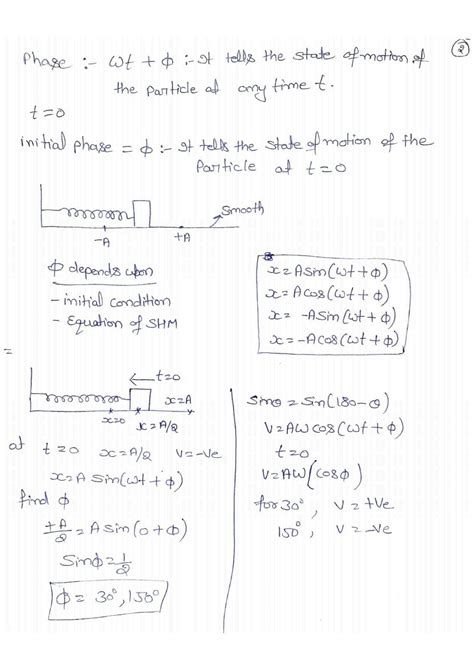 2
Phase :- ωt + ϕ :- It tells the state of motion of
the particle at any time t.
t=0
initial phase = ϕ :- It tells the state of motion of the
Particle at t=0
Smooth
-A +A
ϕ depends upon
- initial condition
- Equation of SHM
x=Asin(ωt+ϕ)
x=Acos(ωt+ϕ)
x= -Asin(ωt+ϕ)
x=-Acos(ωt+ϕ)
=
t=0
x=A
x=0 x=A/2
at t=0 x=A/2 v=-ve
x=A sin(ωt+ϕ)
find ϕ
+A/2 = A sin(0+ϕ)
Sinϕ=1/2
ϕ = 30°, 150°
Sinθ = Sin(180-θ)
V=AW cos(ωt+ϕ)
t=0
V=AW(cosϕ)
for 30°, V=+Ve
150°, V=-Ve